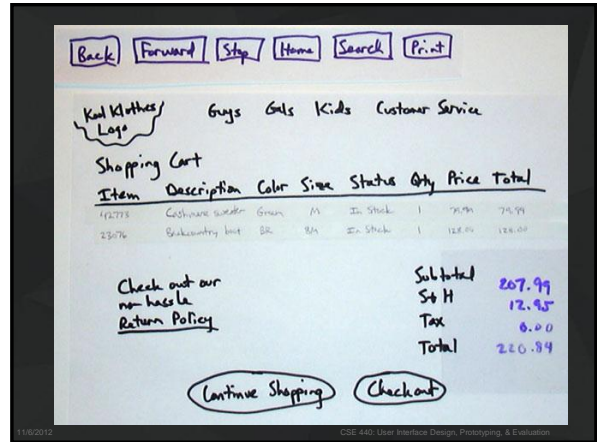 Back Forward Stop Home Search Print
Kool Klothes Logo Guys Gals Kids Customer Service
Shopping Cart
Item Description Color Size Status Qty Price Total
42773 Cashmere sweater Green M In Stock 1 79.99 79.99
23076 Backcountry boot BR In Stock 1 128.00 128.00
Check out our
no hassle
Return Policy
Subtotal 207.99
S+H 12.95
Tax 0.00
Total 220.89
Continue Shopping Checkout
11/6/2012 CSE 440: User Interface Design, Prototyping, & Evaluation